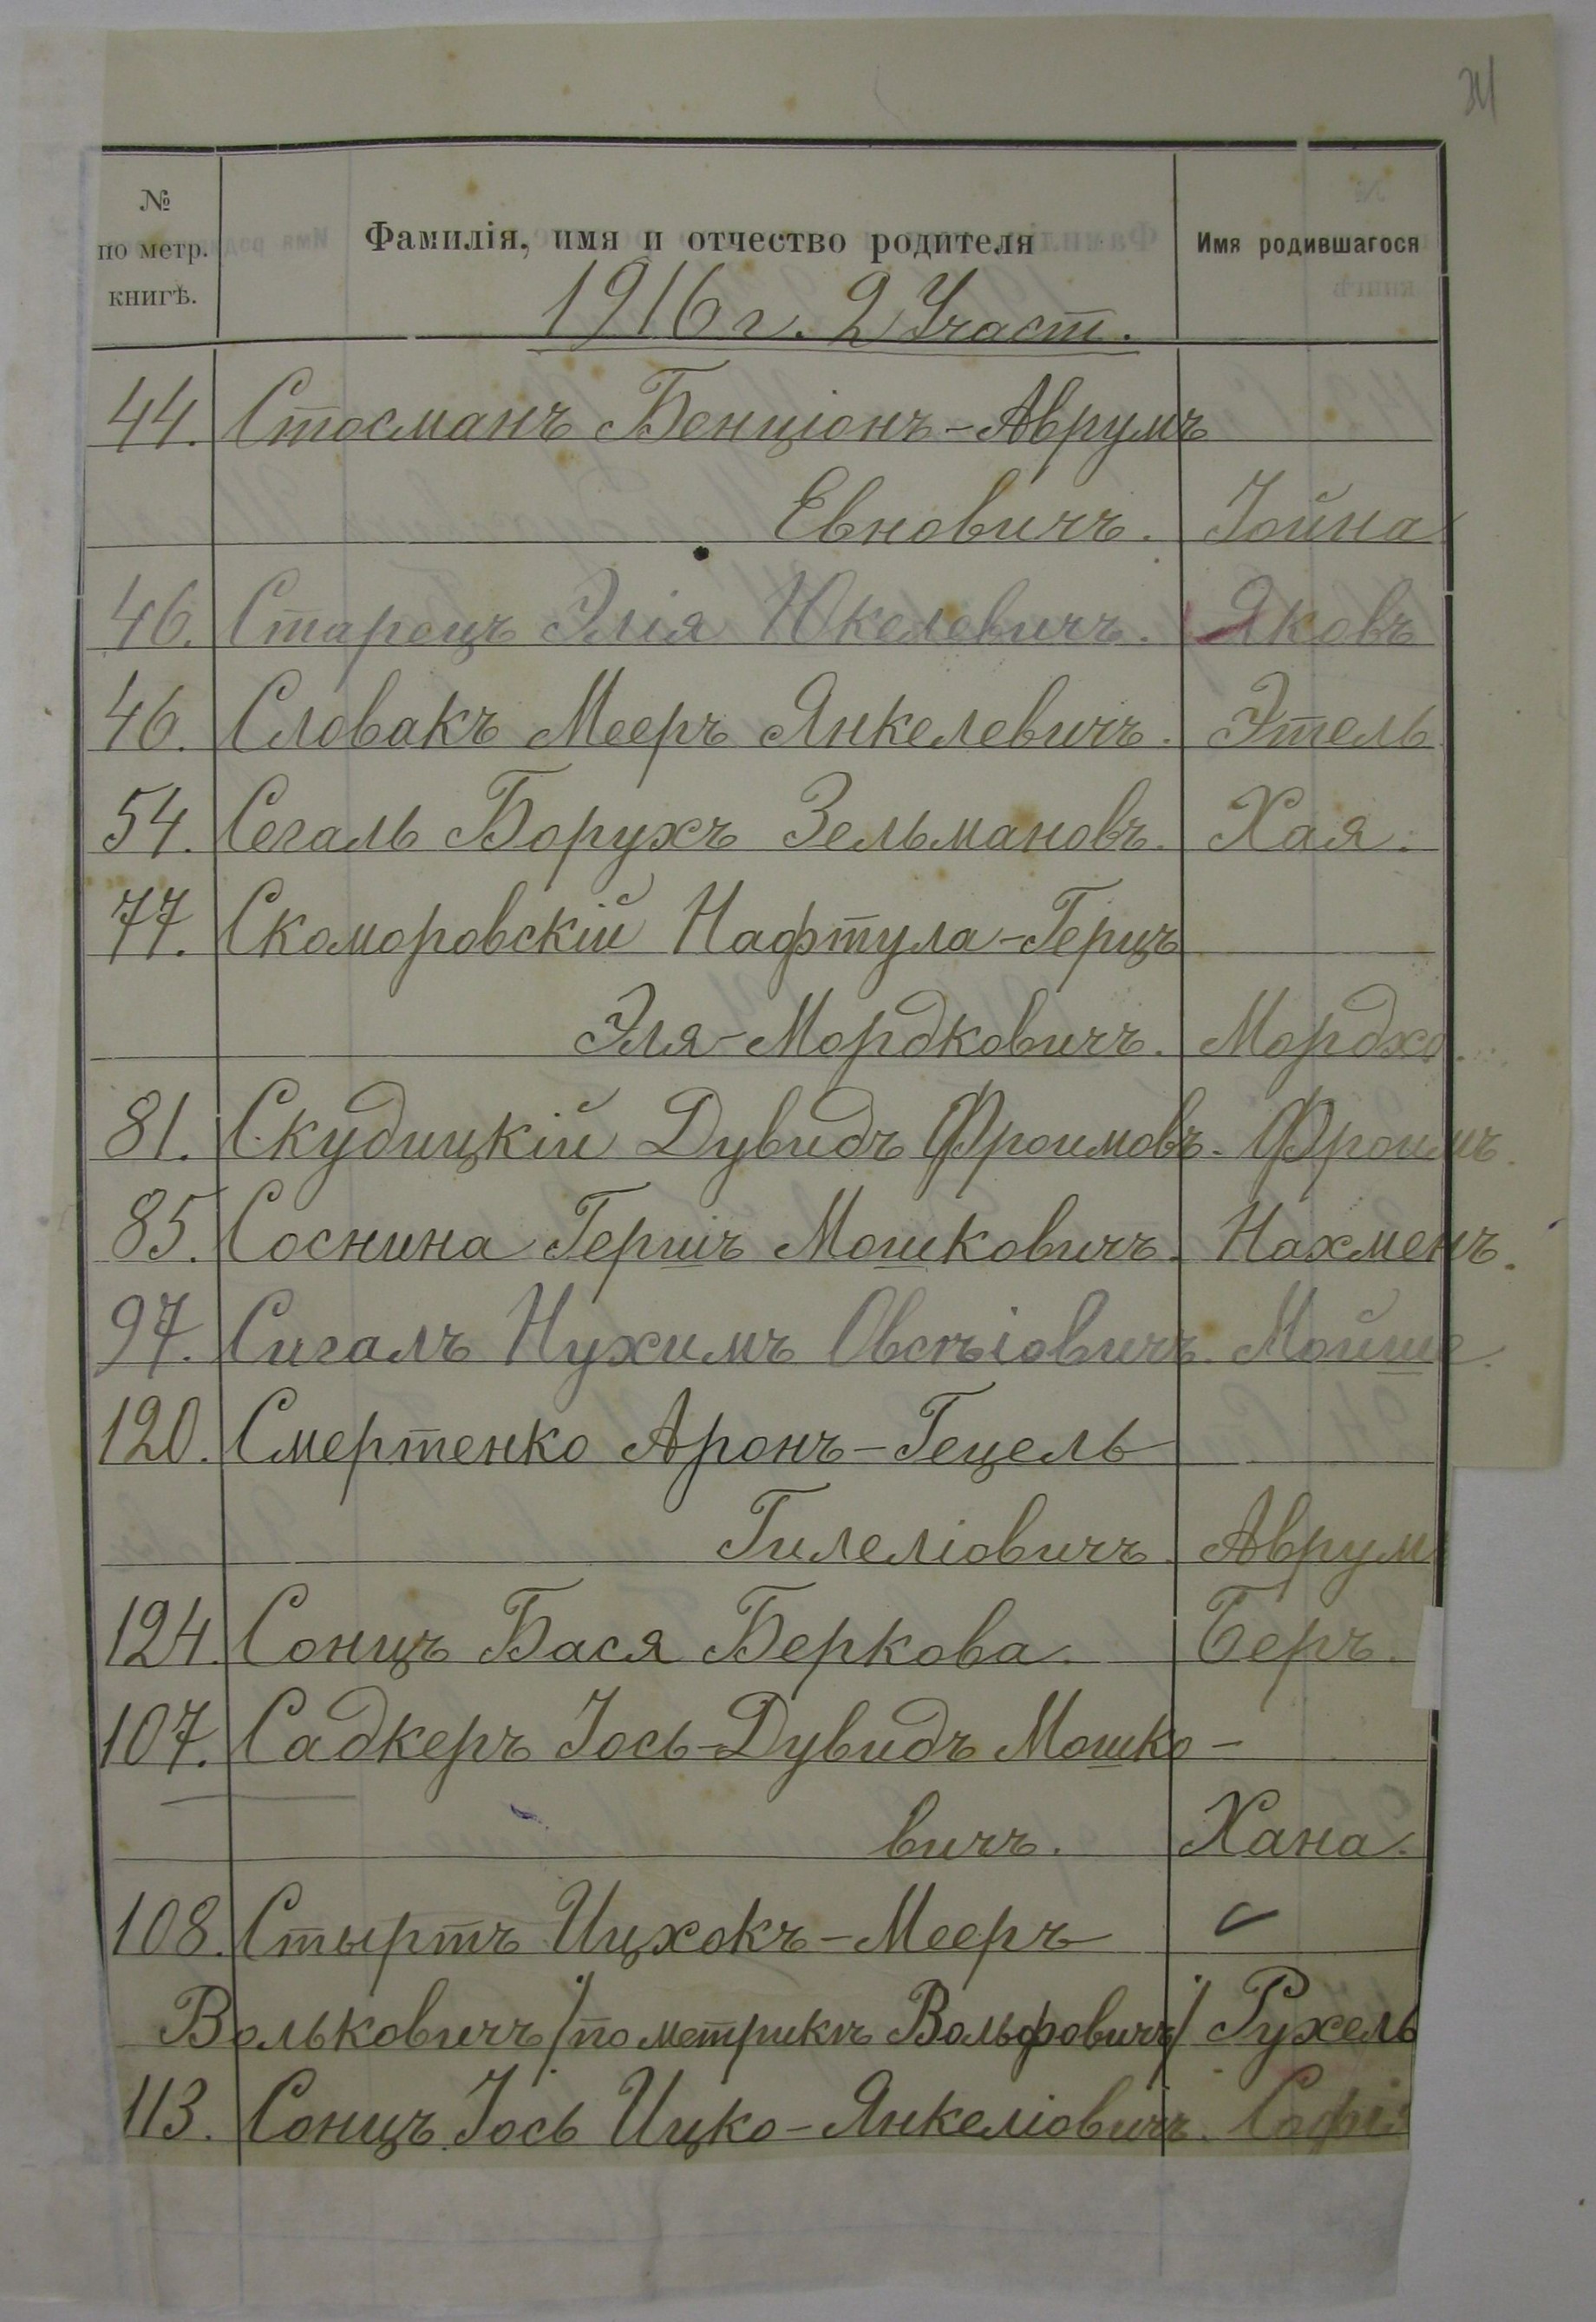 31
№ по метр. книгѣ. Фамилія, имя и отчество родителя Имя родившагося
1916 г. 2 Участ.
44. Стосманъ Бенціонъ-Аврумъ
Евновичъ. Іойна
46. Старецъ Элія Юкелевичъ. Яковъ
46. Словакъ Мееръ Янкелевичъ. Этель.
54. Сегаль Борухъ Зельмановъ. Хая.
77. Скоморовскій Нафтула-Герцъ
Эля-Мордковичъ. Мордхо.
81. Скудицкій Дувидъ Фроимовъ. Фроимъ.
85. Соснина Гершъ Мошковичъ. Нахменъ.
97. Сигалъ Нухимъ Овсѣіовичъ. Мойше.
120. Смертенко Аронъ-Гецель
Гилеліовичъ. Аврум
124. Сонцъ Бася Беркова. Беръ.
107. Садкеръ Іось-Дувидъ Мошко-
вичъ. Хана.
108. Стыртъ Ицхокъ-Мееръ
Вольковичъ /по метрикѣ Вольфовичъ/ Рухель
113. Сонцъ Іось Ицко-Янкеліовичъ. Софія